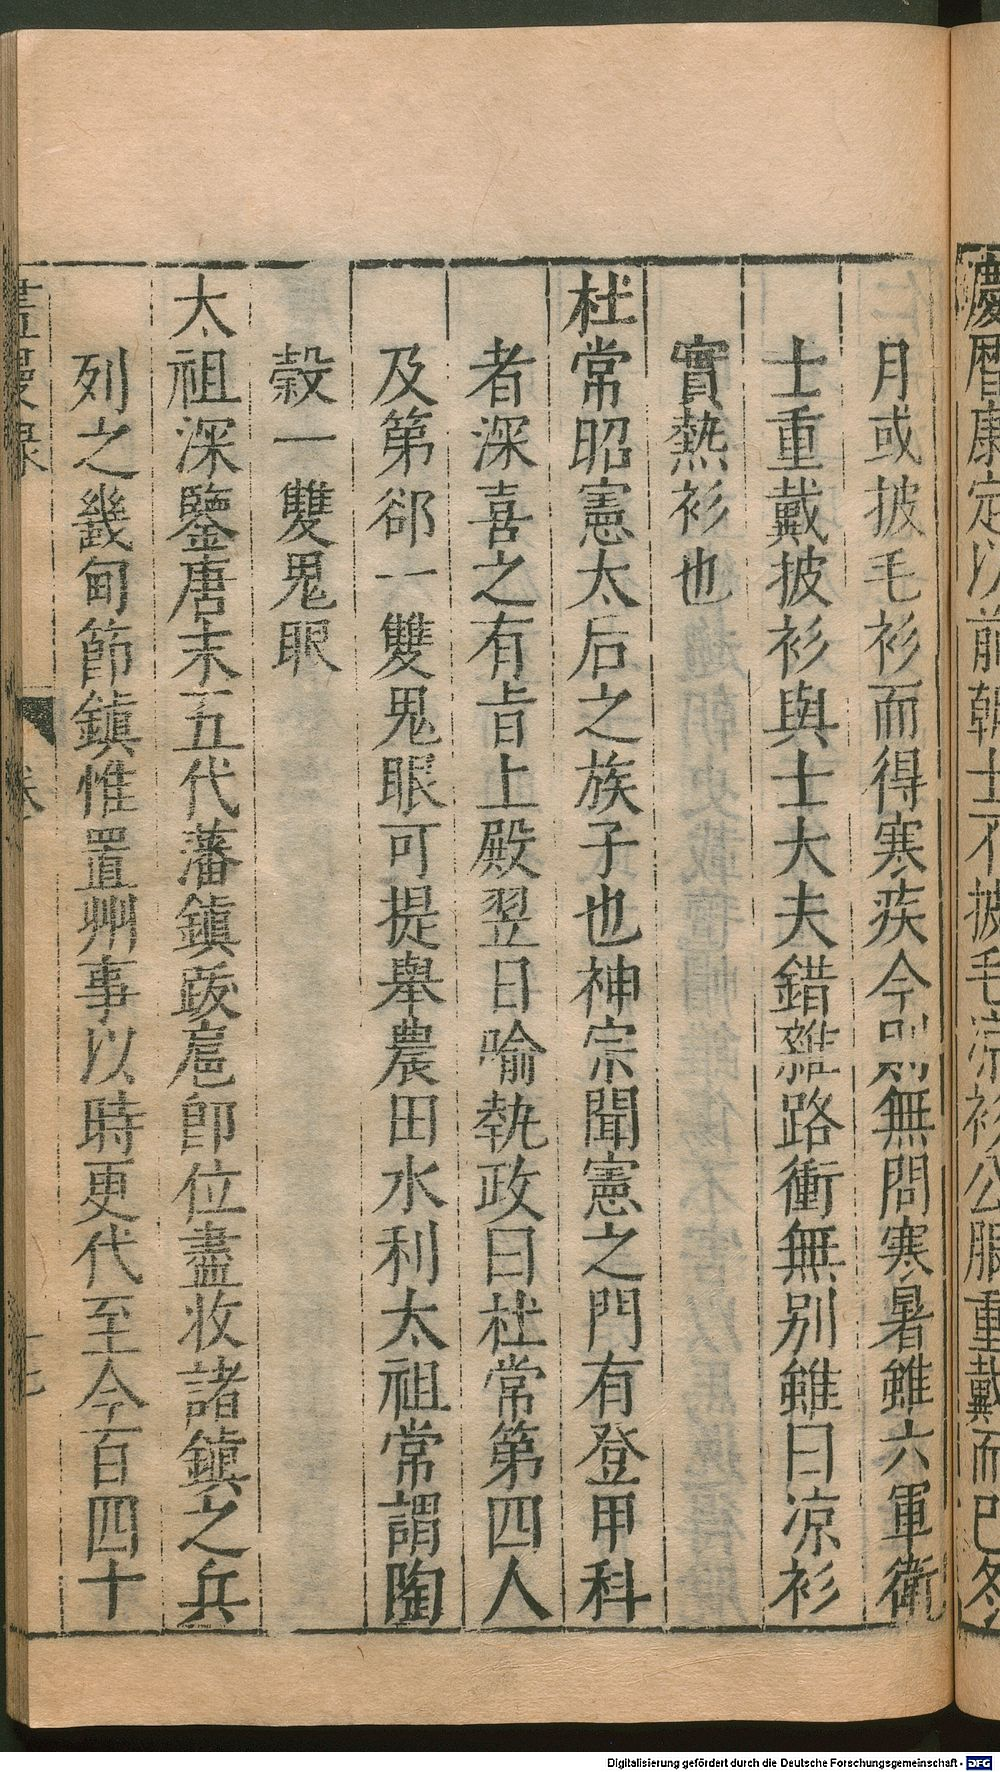 慶曆康定以前朝士不披毛涼衫公服重戴而已冬
月或披毛衫而得寒疾今則無問寒暑雖六軍衛
士重戴披衫與士大夫錯雜路衝無別雖曰凉衫
實熱衫也
杜常昭憲太后之族子也神宗聞憲之門有登甲科
者深喜之有旨上殿翌日喻執政曰杜常第四人
及第郤一雙鬼眼可提舉農田水利太祖常謂陶
穀一雙鬼眼
太祖深鑒唐末五代藩鎮跋扈卽位盡收諸鎮之兵
列之畿甸節鎮惟置州事以時更代至今百四十
畫墁錄
卷
十七
Digitalisierung gefördert durch die Deutsche Forschungsgemeinschaft - DFG